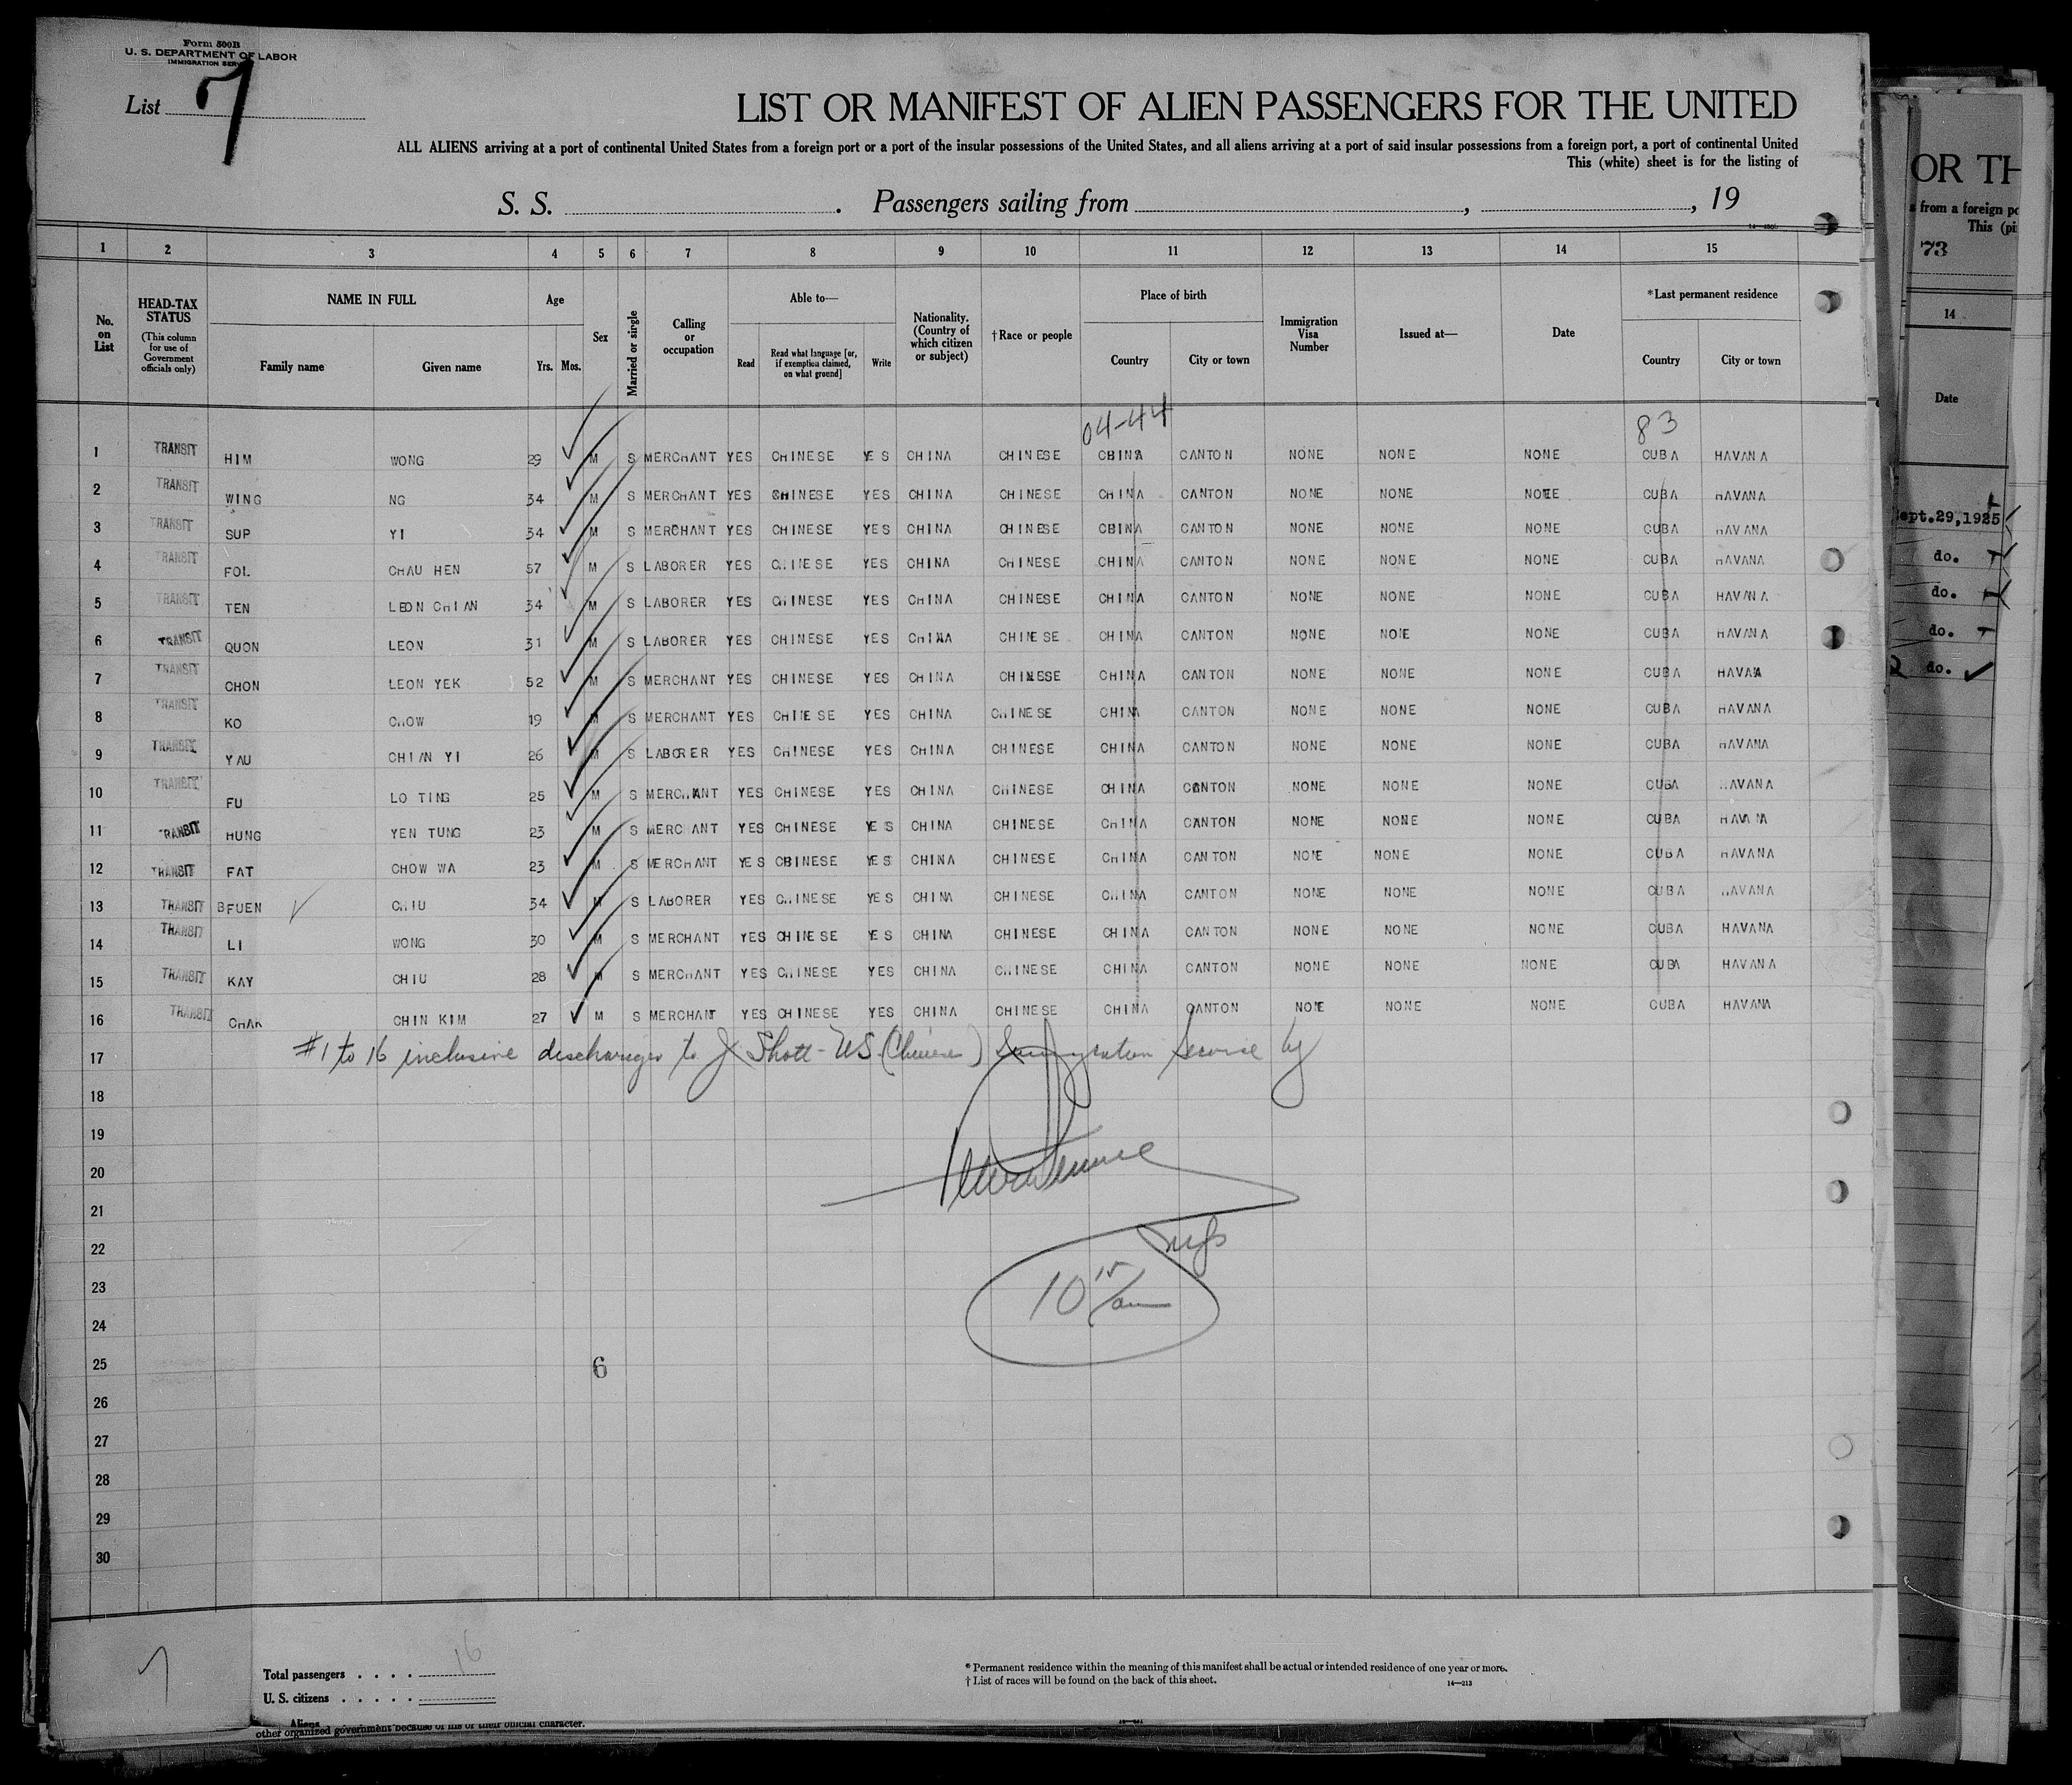 Form 500B
U. S. DEPARTMENT OF LABOR
IMMIGRATION SERV
List 7
LIST OR MANIFEST OF ALIEN PASSENGERS FOR THE UNITED
ALL ALIENS arriving at a port of continental United States from a foreign port or a port of the insular possessions of the United States, and all aliens arriving at a port of said insular possessions from a foreign port, a port of continental United
This (white) sheet is for the listing of
S. S. . Passengers sailing from , , 19
1 2 3 4 5 6 7 8 9 10 11 12 13 14 15
No. on List
HEAD-TAX STATUS (This column for use of Government officials only)
NAME IN FULL Family name Given name
Age Yrs. Mos.
Sex
Married or single
Calling or occupation
Able to— Read Read what language [or, if exemption claimed, on what ground] Write
Nationality. (Country of which citizen or subject)
†Race or people
Place of birth Country City or town
Immigration Visa Number
Issued at—
Date
*Last permanent residence Country City or town
04-44 83
1 TRANSIT HIM WONG 29 M S MERCHANT YES CHINESE YES CHINA CHINESE CBINA CANTON NONE NONE NONE CUBA HAVANA
2 TRANSIT WING NG 34 M S MERCHANT YES CHINESE YES CHINA CHINESE CHINA CANTON NONE NONE NONE CUBA HAVANA
3 TRANSIT SUP YI 34 M S MERCHANT YES CHINESE YES CHINA CHINESE CBINA CANTON NONE NONE NONE CUBA HAVANA
4 TRANSIT FOL CHAU HEN 57 M S LABORER YES CHINESE YES CHINA CHINESE CHINA CANTON NONE NONE NONE CUBA HAVANA
5 TRANSIT TEN LEON CHIAN 34 M S LABORER YES CHINESE YES CHINA CHINESE CHINA CANTON NONE NONE NONE CUBA HAVANA
6 TRANSIT QUON LEON 31 M S LABORER YES CHINESE YES CHINA CHINESE CHINA CANTON NONE NONE NONE CUBA HAVANA
7 TRANSIT CHON LEON YEK 52 M S MERCHANT YES CHINESE YES CHINA CHINESE CHINA CANTON NONE NONE NONE CUBA HAVAA
8 TRANSIT KO CHOW 19 M S MERCHANT YES CHINESE YES CHINA CHINESE CHINA CANTON NONE NONE NONE CUBA HAVANA
9 TRANSIT YAU CHIAN YI 26 M S LABORER YES CHINESE YES CHINA CHINESE CHINA CANTON NONE NONE NONE CUBA HAVANA
10 TRANSIT FU LO TING 25 M S MERCHANT YES CHINESE YES CHINA CHINESE CHINA CANTON NONE NONE NONE CUBA HAVANA
11 TRANSIT HUNG YEN TUNG 23 M S MERCHANT YES CHINESE YES CHINA CHINESE CHINA CANTON NONE NONE NONE CUBA HAVANA
12 TRANSIT FAT CHOW WA 23 M S MERCHANT YES CBINESE YES CHINA CHINESE CHINA CANTON NONE NONE NONE CUBA HAVANA
13 TRANSIT BFUEN CHIU 34 M S LABORER YES CHINESE YES CHINA CHINESE CHINA CANTON NONE NONE NONE CUBA HAVANA
14 TRANSIT LI WONG 30 M S MERCHANT YES CHINESE YES CHINA CHINESE CHINA CANTON NONE NONE NONE CUBA HAVANA
15 TRANSIT KAY CHIU 28 M S MERCHANT YES CHINESE YES CHINA CHINESE CHINA CANTON NONE NONE NONE CUBA HAVANA
16 TRANSIT CHAK CHIN KIM 27 M S MERCHANT YES CHINESE YES CHINA CHINESE CHINA CANTON NONE NONE NONE CUBA HAVANA
17 #1 to 16 inclusive discharged to J Shott - US. (Chinese) Immigration Service by
18
19
20
21
22
23 10 15/am
24
25 6
26
27
28
29
30
7
Total passengers . . . . 16
U. S. citizens . . . . .
Aliens
other organized government because of his or their official character.
* Permanent residence within the meaning of this manifest shall be actual or intended residence of one year or more.
† List of races will be found on the back of this sheet.
14—213
OR TH
from a foreign po
This (pi
73
14
Date
ept.29,1925
do.
do.
do.
do.